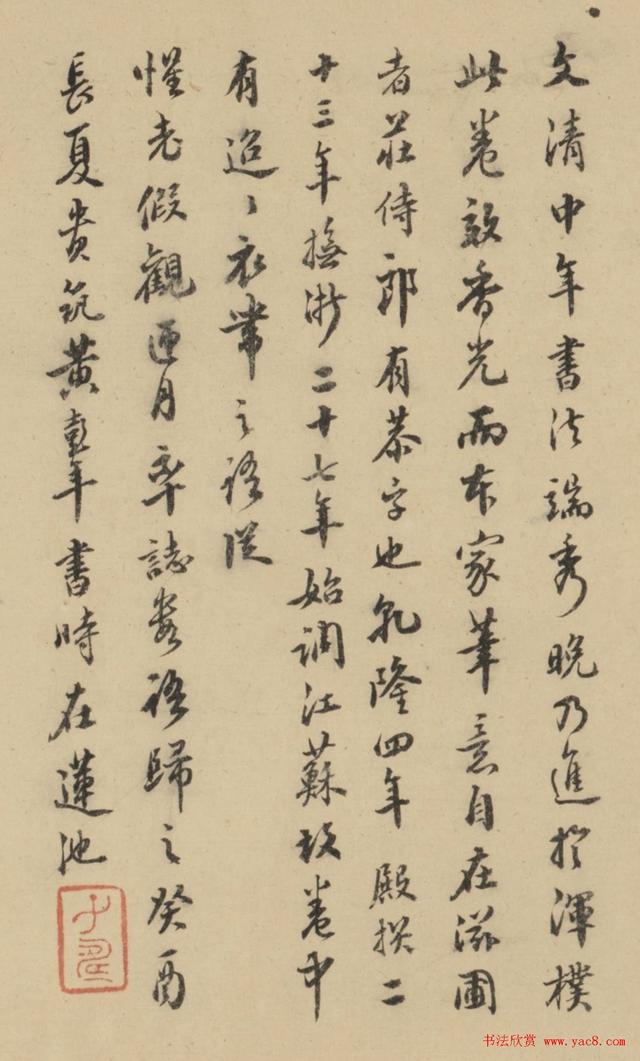 文清中年書法端秀晚乃進於渾樸
此卷效香光而本家筆意自在滋圃
者莊侍郎有恭字也乾隆四年殿撰二
十三年撫浙二十七年始調江蘇故卷中
有迢〻衣帶之語從
惺老假觀匝月率誌數語歸之癸酉
長夏貴筑黃彭年書時在蓮池
书法欣赏 www.yac8.com